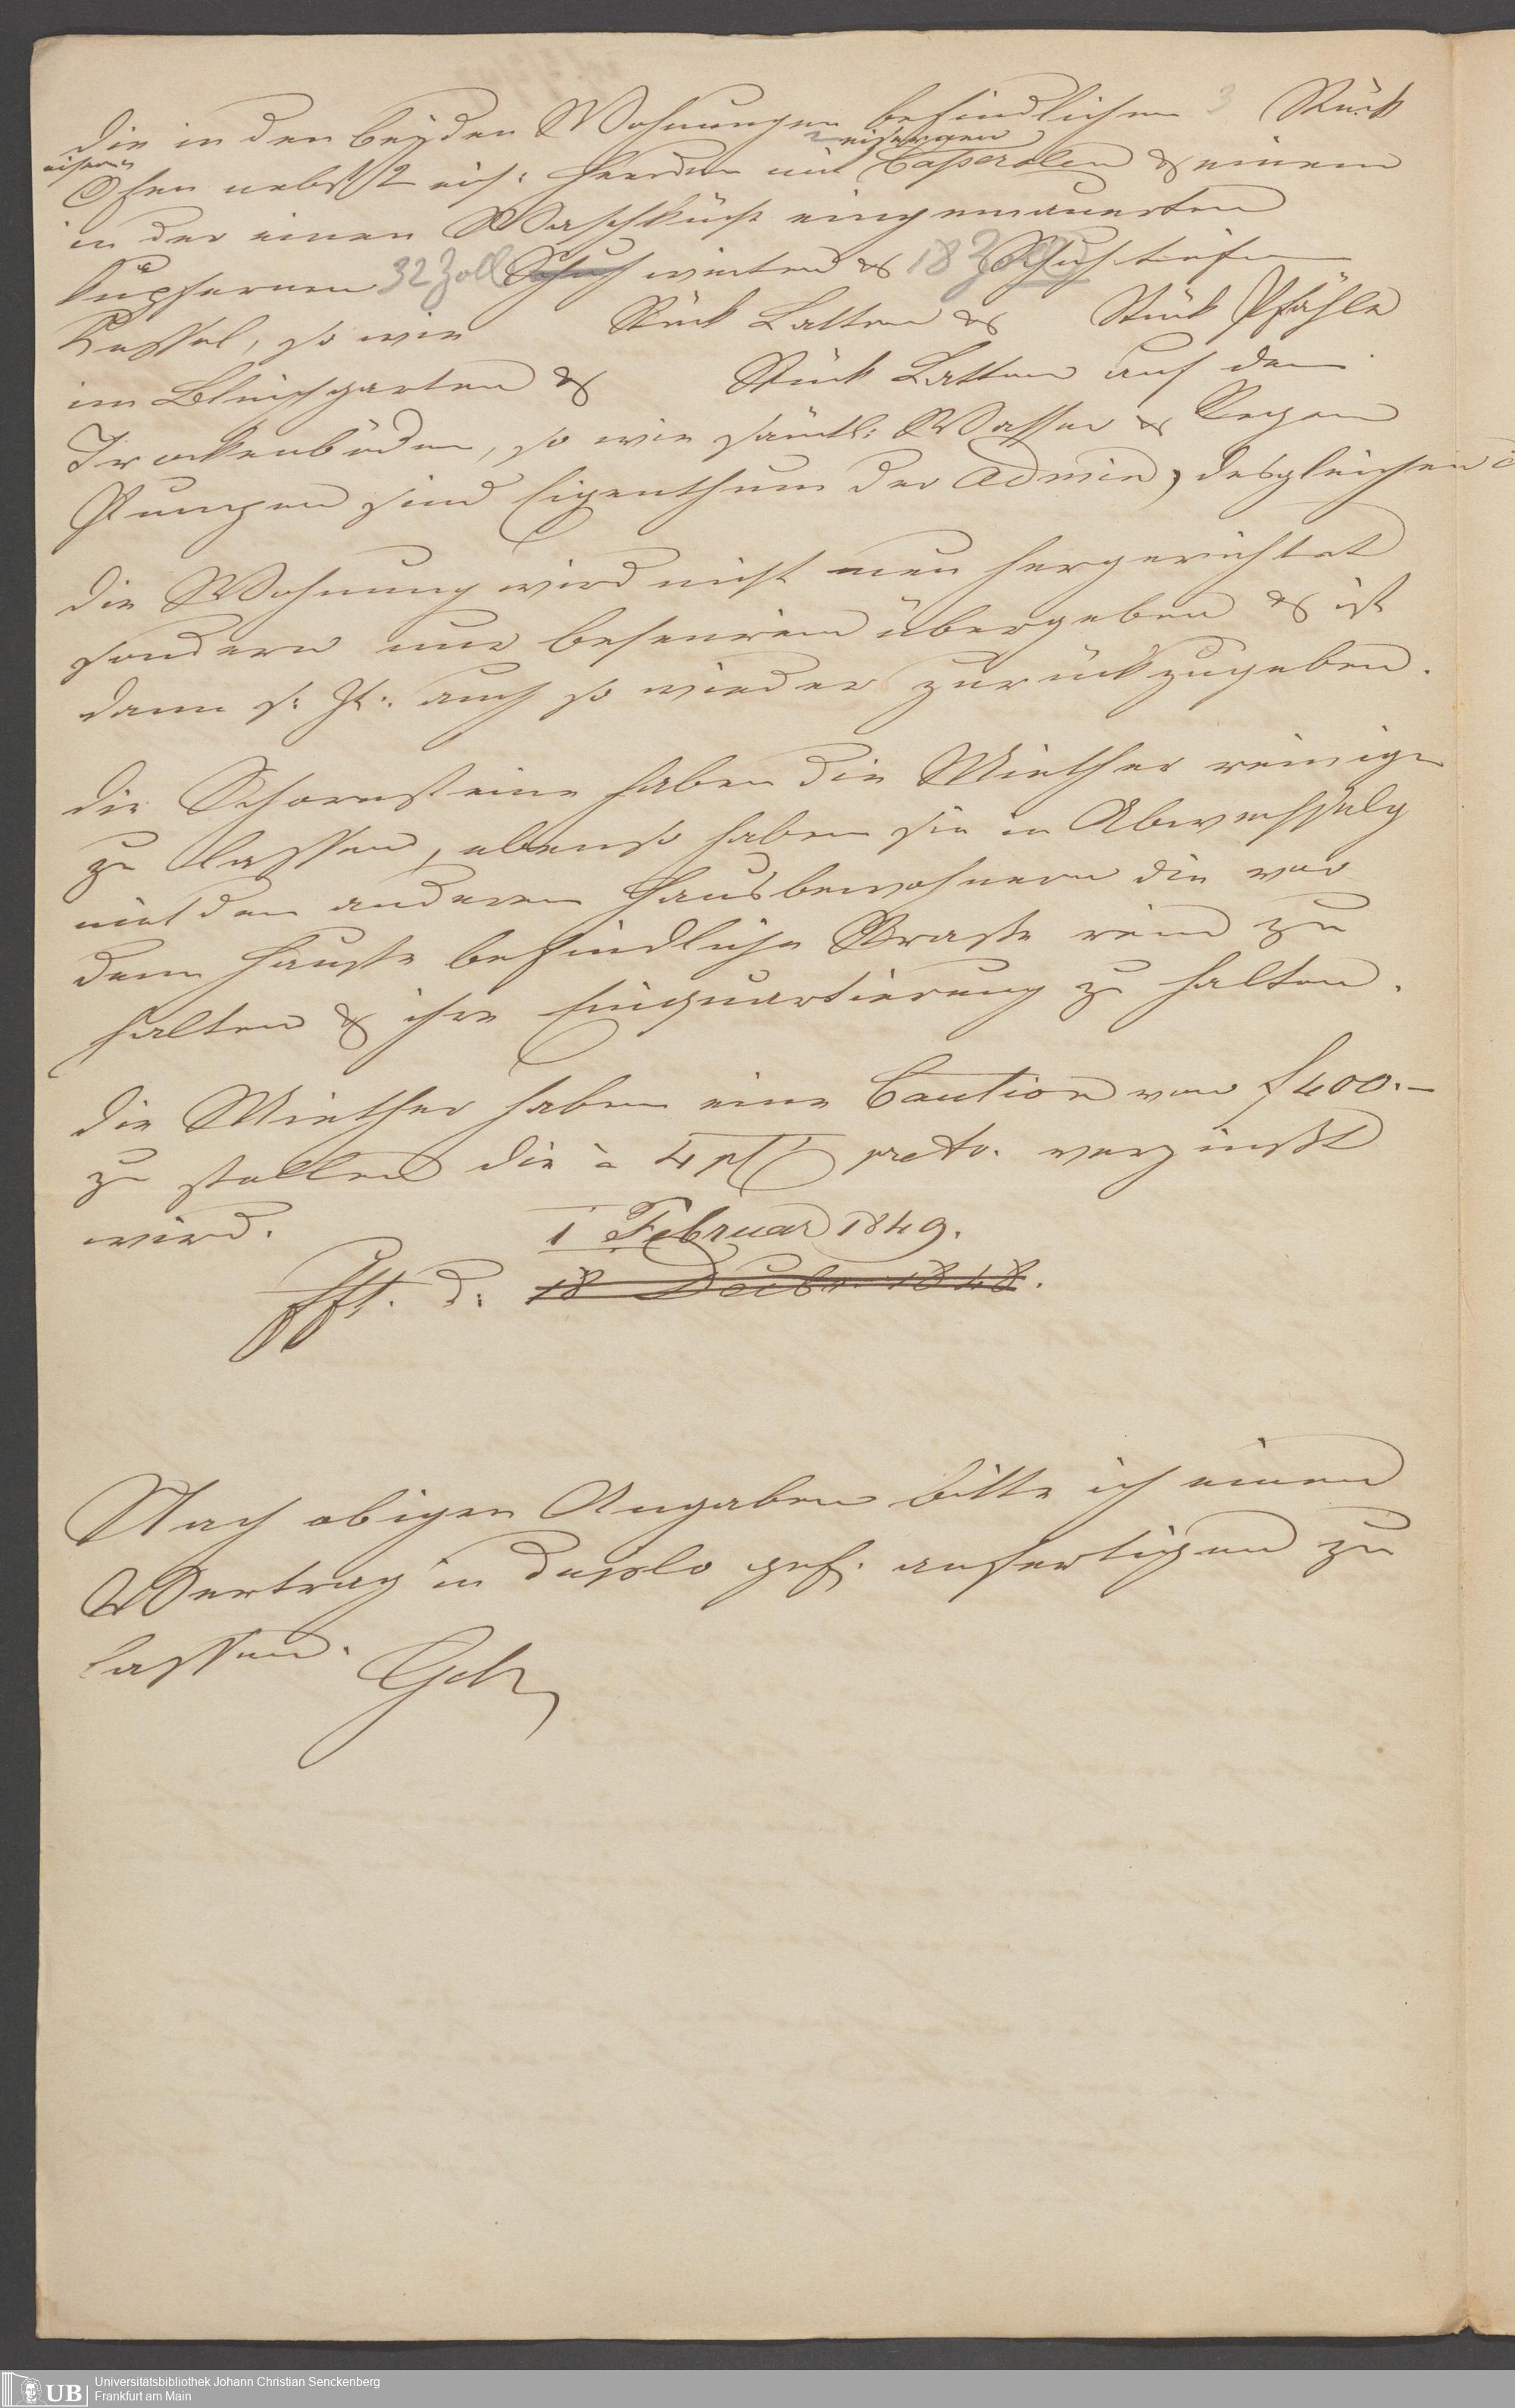 Die in den beyden Wohnungen befindlichen 3 Stück
eiserne
2 eisernen
Ofen nebst 2 eis: Heerden mit Casserolen & einem
in der einen Waschküche eingemauerten
kupfernen 32 Zoll Schuh weiten & 18 Z Schuh tiefen
Kessel, so wie Stück Latten & Stück Pfähle
im Bleichgarten & Stück Latten auf dem
Trockenboden, so wie sämtl: Wasser & Regen
Pumpen sind Eigenthum der Admin, desgleichen
Die Wohnung wird nicht neu hergerichtet
sondern nur besenrein übergeben & ist
dann s: Zt: auch so wieder zurückzugeben.
Die Schornsteine haben die Miether reinigen
zu lassen, ebenso haben sie in Abwechselg
mit den anderen Hausbewohnern die vor
dem Hause befindliche Strasse rein zu
halten & ihre Einquartierung zu halten.
Die Miether haben eine Caution von f 400.–
zu stellen die à 4 pCt verzinst
wird.
1 Februar 1849.
Fft. d. 18 Decbr. 1848.
Nach obigen Angaben bitte ich einen
Vertrag in duplo gef. anfertigen zu
lassen.
UB
Universitätsbibliothek Johann Christian Senckenberg
Frankfurt am Main